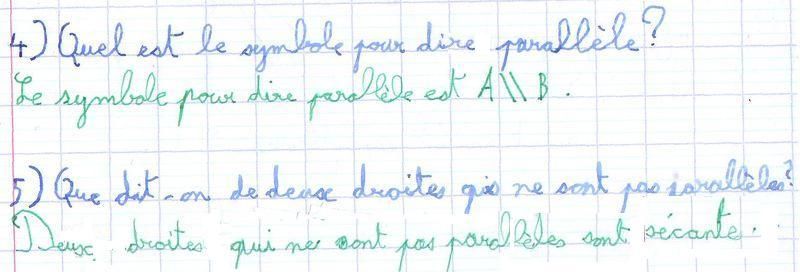 4) Quel est le symbole pour dire parallèle?
Le symbole pour dire parallèle est A \\ B.
5) Que dit-on de deux droites qui ne sont pas parallèles?
Deux droites qui ne sont pas parallèles sont sécante.